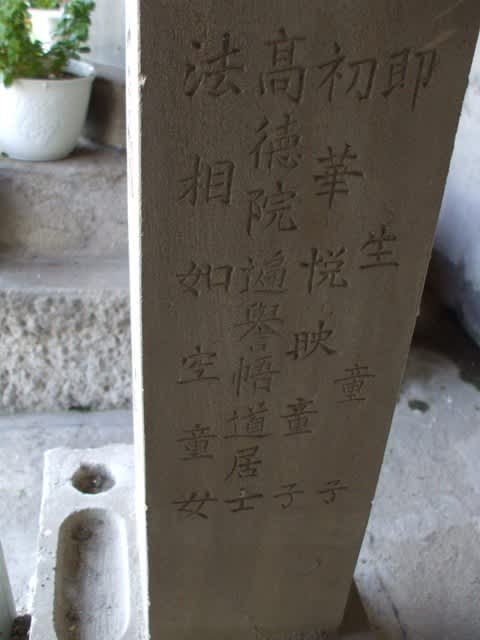 即生童子
初華悦映童子
高徳院遍譽悟道居士
法相如空童女